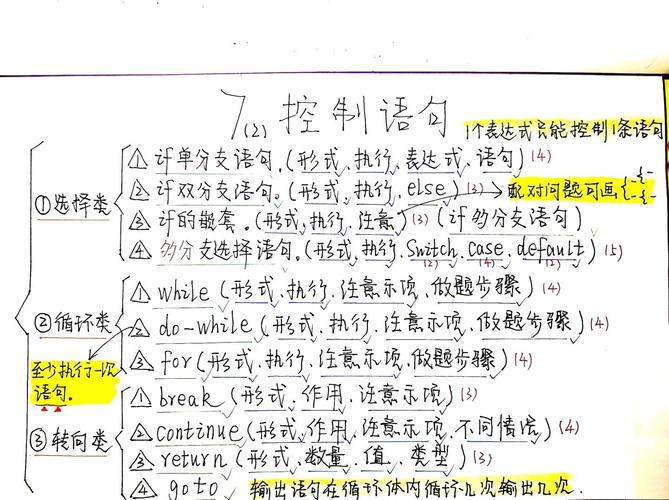 7(2) 控制语句 1个表达式只能控制1条语句
①选择类
△1 if单分支语句.(形式、执行、表达式、语句)(4)
△2 if双分支语句。(形式、执行、else)(3)→配对问题可画{-{-
△3 if的嵌套.(形式、执行、注意)(3)(if多分支语句)
△4 多分支选择语句.(形式、执行、Switch、case、default)(5)
(2) (4) (2)
②循环类
△1 while(形式、执行、注意示项、做题步骤)(4)
△2 do-while(形式、执行、注意示项、做题步骤)(4)
△3 for(形式、执行、注意示项、做题步骤)(4)
至少执行一次
语句。
③转向类
△1 break(形式、作用、注意示项)(3)
△2 continue(形式、作用、注意示项、不同情况)(4)
△3 return(形式、数量、值、类型)(3)
△4 goto 输出语句在循环体内循环几次输出几次.